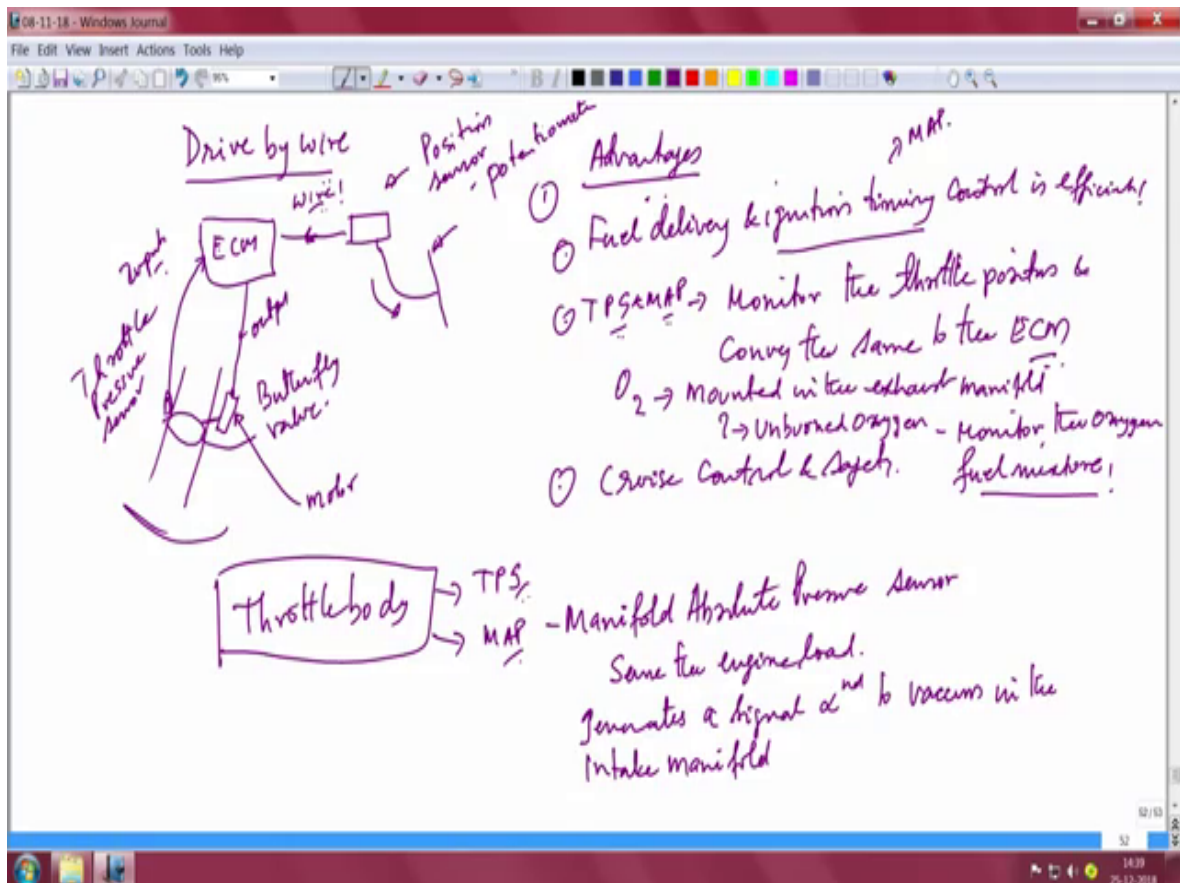 08-11-18 - Windows Journal
File Edit View Insert Actions Tools Help
96%
B I
Drive by wire
wire!
Position
sensor
- potentiometer
ECM
Input
output
Throttle
Pressure
sensor
Butterfly
valve.
motor
Advantages
MAP.
Fuel delivery & ignition timing Control is efficient!
TPS & MAP → Monitor the throttle position &
Convey the same to the ECM
O2 → Mounted in the exhaust manifold
? → Unburned Oxygen - Monitor the Oxygen
fuel mixture!
Cruise Control & Safety.
Throttle body
→ TPS
→ MAP - Manifold Absolute Pressure sensor
Sense the engine load.
generates a signal ∝nd to vaccum in the
intake manifold
52/53
52
14:39
25-12-2018